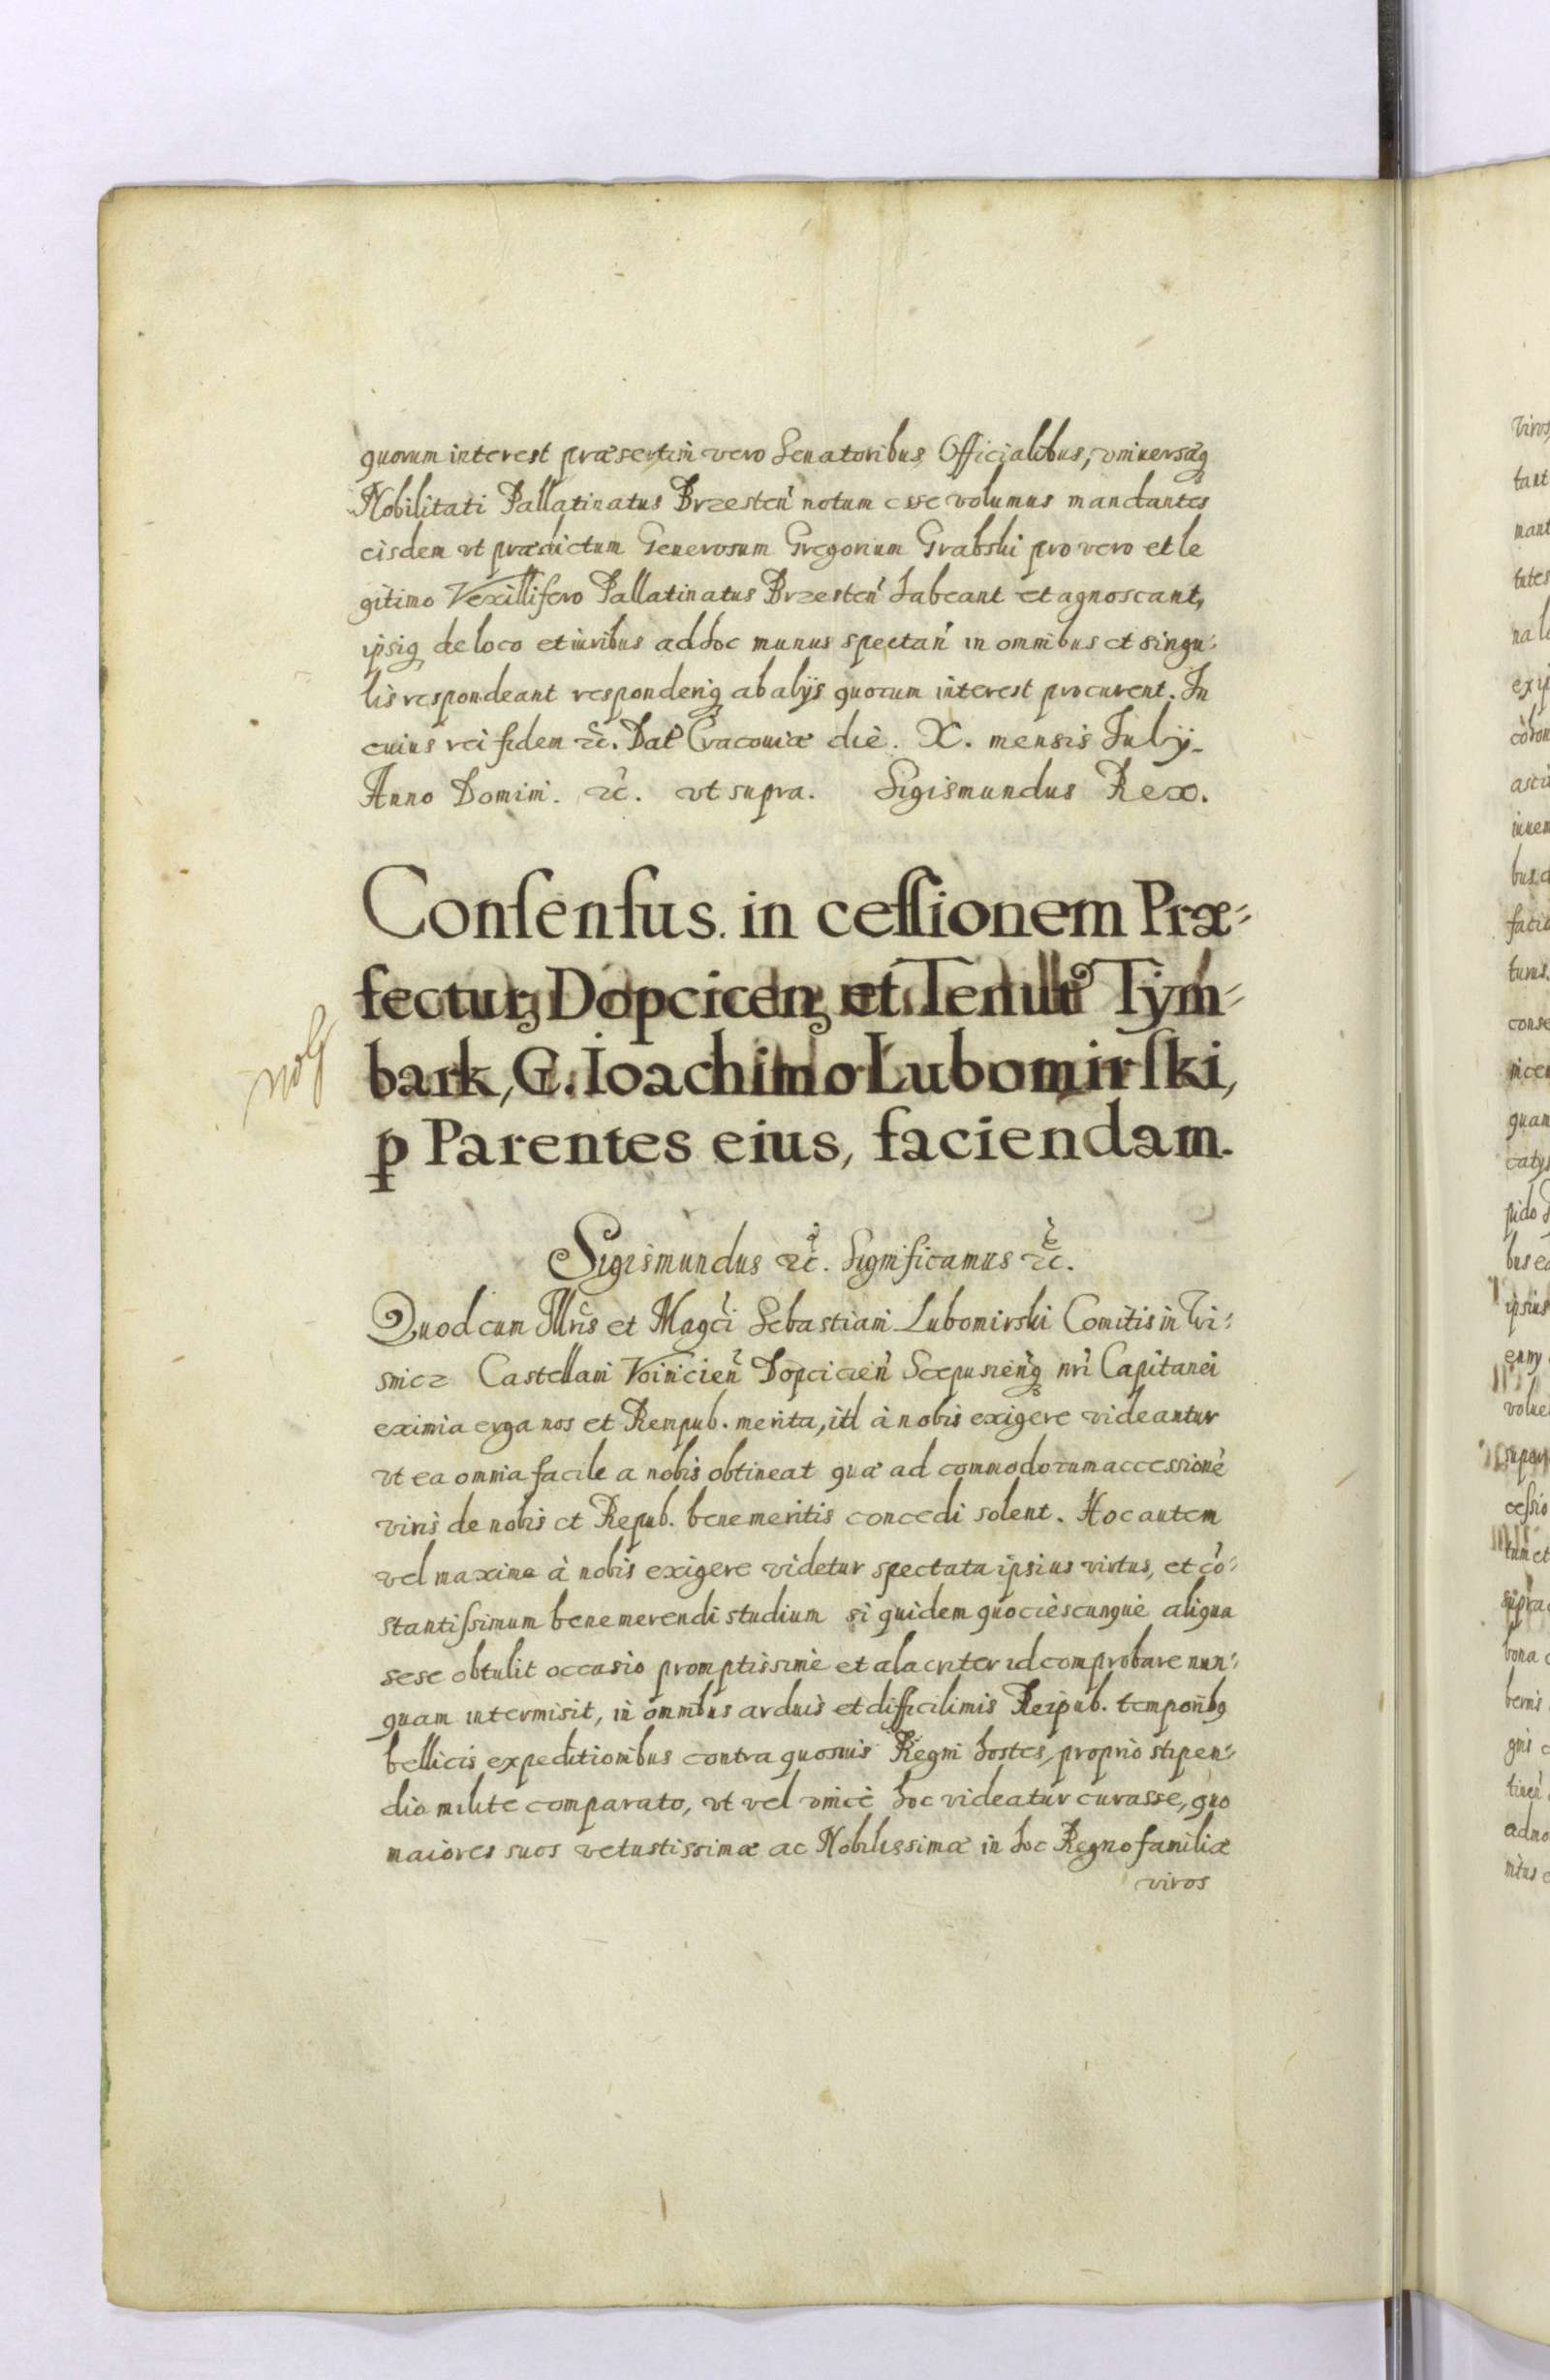 quorum interest præsertim vero Senatoribus Officialibus, vniuersæq̃
Nobilitati Pallatinatus Brzesteń notum esse volumus mandantes
eisdem vt prædictum Generosum Gregorium Grabski pro vero et le
gitimo Vexillifero Pallatinatus Brzesteń habeant et agnoscant,
ipsiq̃ de loco et iuribus ad hoc munus spectań in omnibus et singu-
lis respondeant responderiq̃ ab alijs quorum interest procurent. In
cuius rei fidem ꝛc̃. Dat Cracouiæ die. X. mensis Iulij.
Anno Domini. ꝛc̃. vt supra. Sigismundus Rex.
Conſenſus in ceſſionem Præ-
fectur Dopcicen et Tenut Tym-
bark, G. Ioachimo Lubomirſki,
ꝑ Parentes eius, faciendam.
Sigismundus ꝛc̃. Significamus ꝛc̃.
Quod cum Illris et Magci Sebastiani Lubomirski Comitis in Wi-
snicz Castellani Voinicień Dopcicień Scepusieńq̃ nri Capitanei
eximia erga nos et Rempub. merita, id à nobis exigere videantur
vt ea omnia facile a nobis obtineat quæ ad commodorum accessionẽ
viris de nobis et Repub. benemeritis concedi solent. Hoc autem
vel maxime à nobis exigere videtur spectata ipsius virtus, et cõ-
stantiſsimum benemerendi studium si quidem quociescunque aliqua
sese obtulit occasio promptissimè et alacriter id comprobare nun-
quam intermisit, in omnibus arduis et difficilimis Reipub. temporibꝰ
bellicis expeditionibus contra quosuis Regni hostes, proprio stipen-
dio milite comparato, vt vel vnicè hoc videatur curasse, quo
maiores suos vetustissimæ ac Nobilissimæ in hoc Regno familiæ
viros